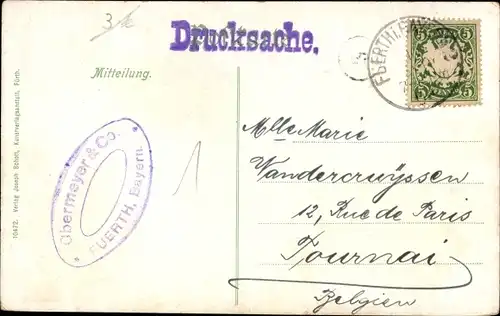 3
Drucksache.
5 5
FUERTH
Mitteilung.
10472. Verlag Joseph Schott, Kunstverlagsanstalt, Fürth.
Obermeyer & Co.
* FUERTH, Bayern. *
1
Mlle Marie
Vandercruÿssen
12, Rue de Paris
Tournai
Belgien